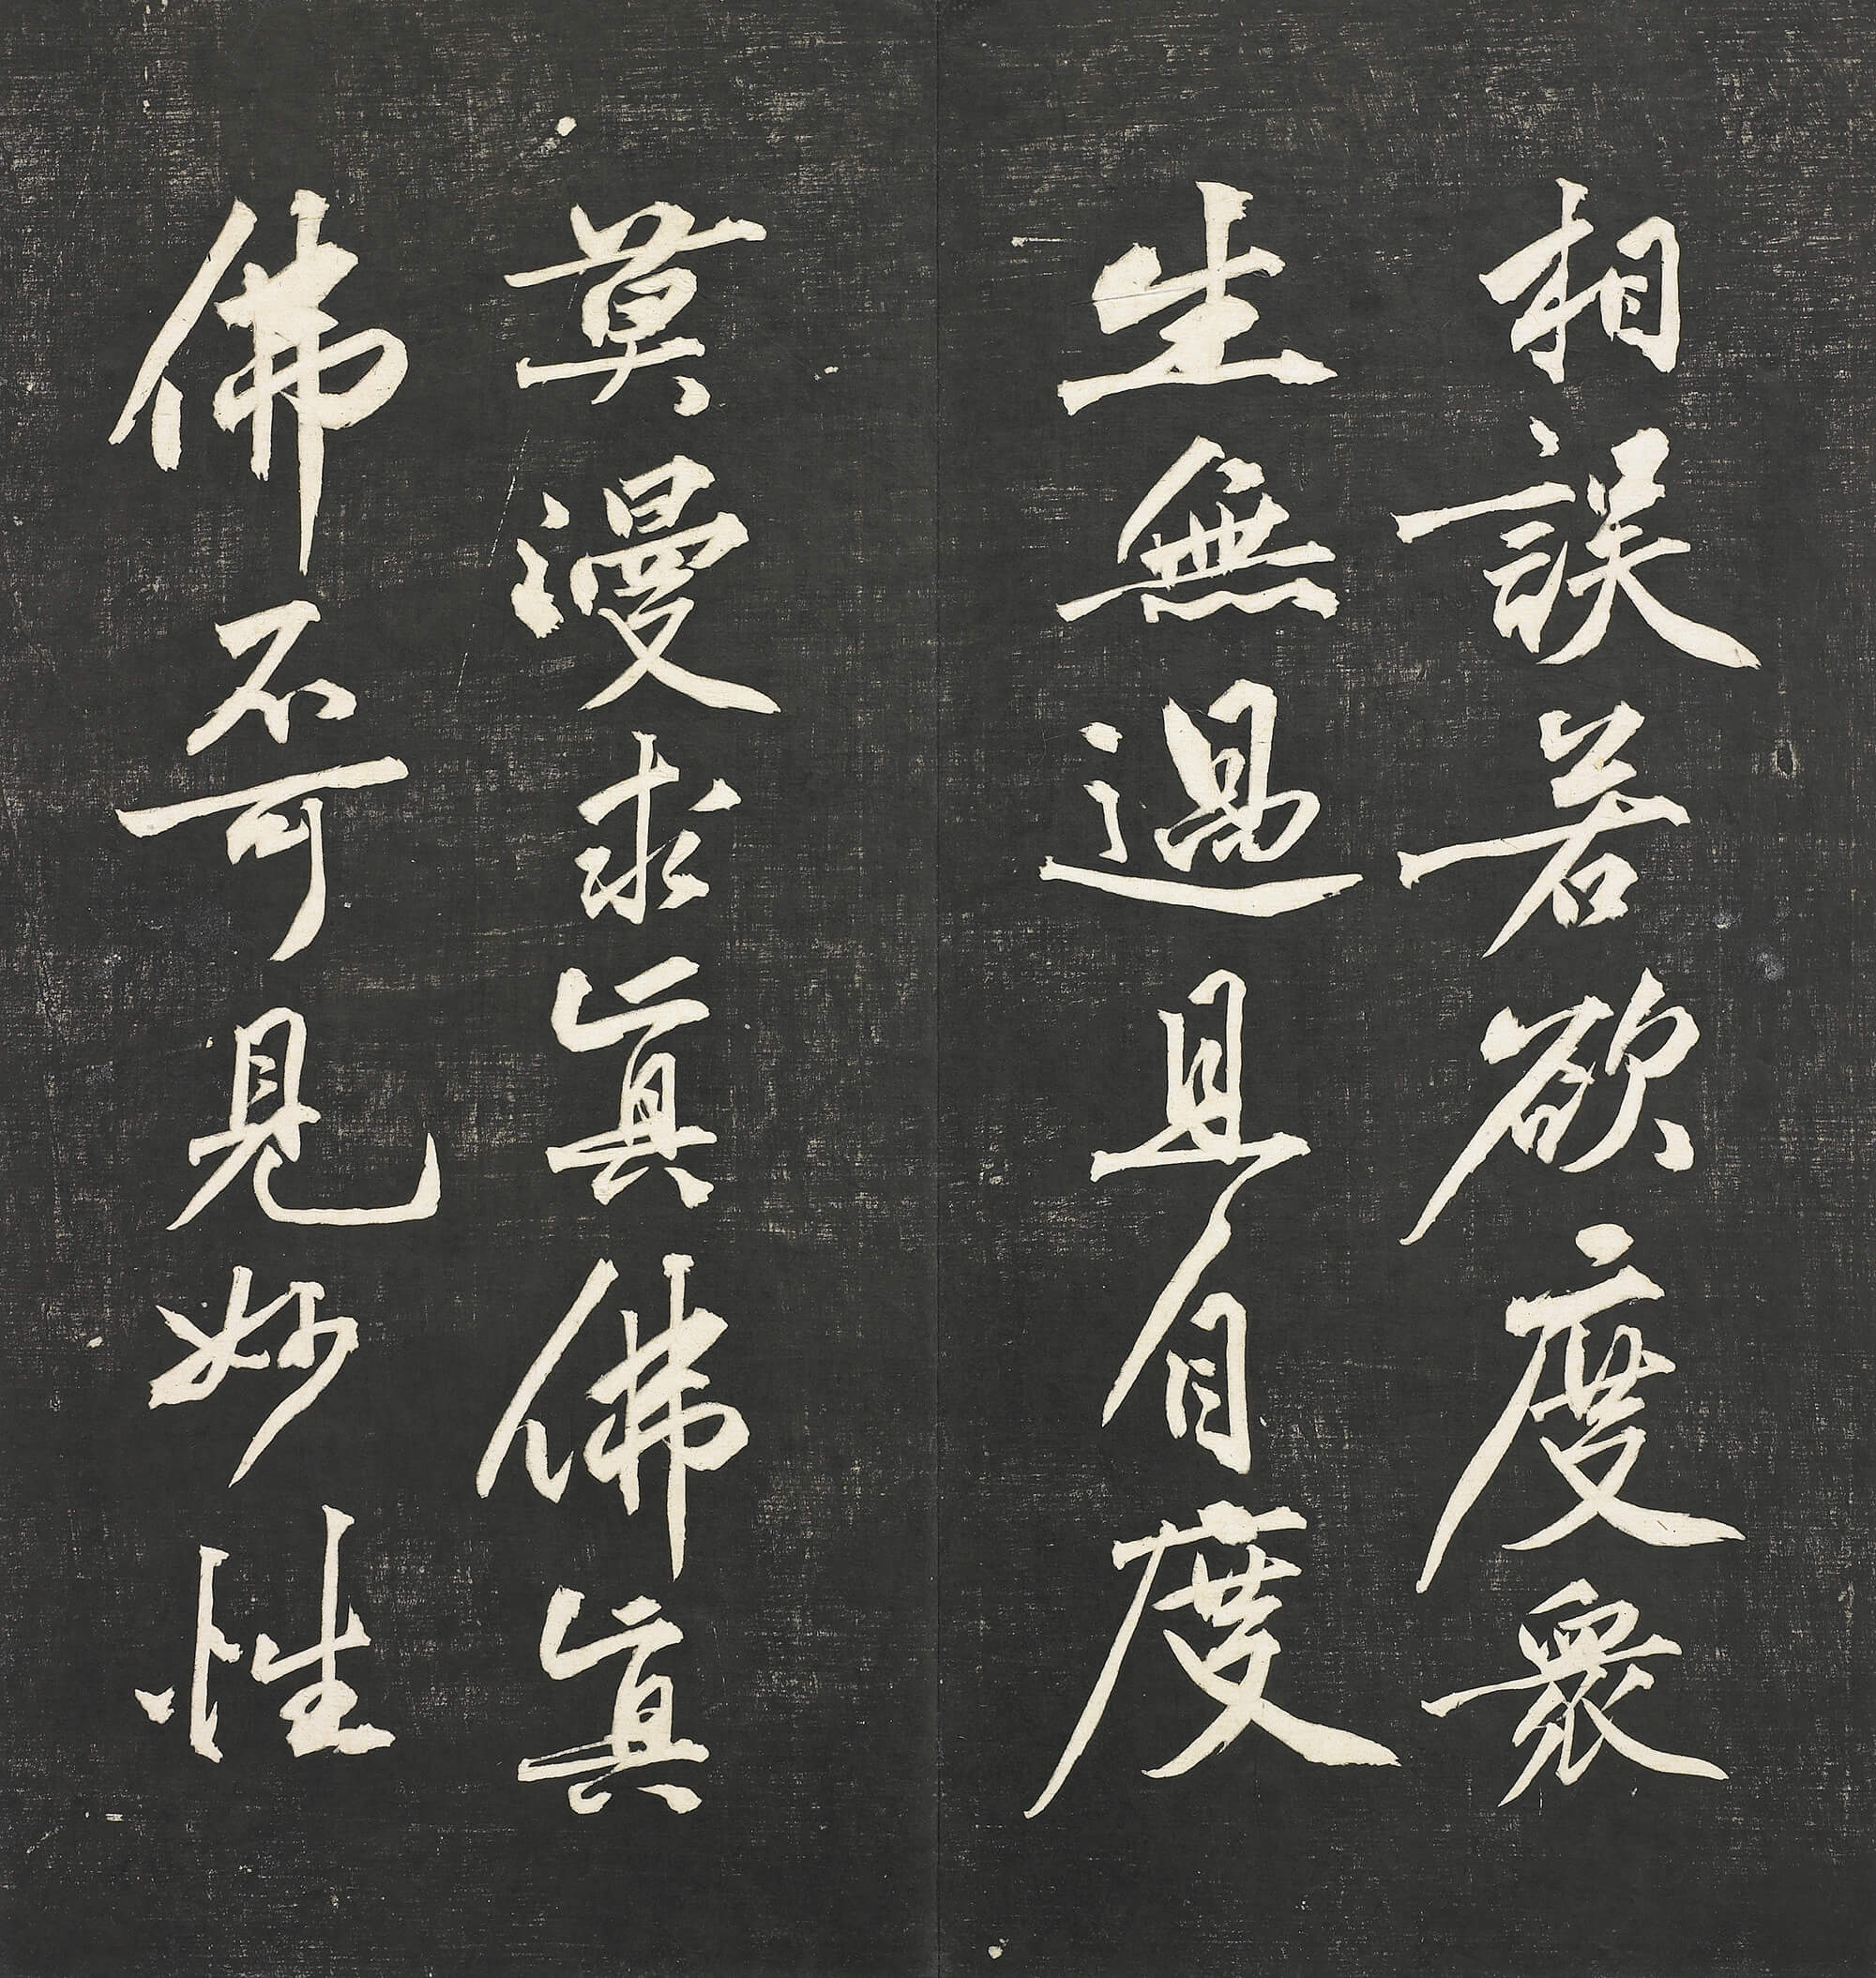 相誤若欲度衆
生無過且自度
莫漫求真佛真
佛不可見妙性